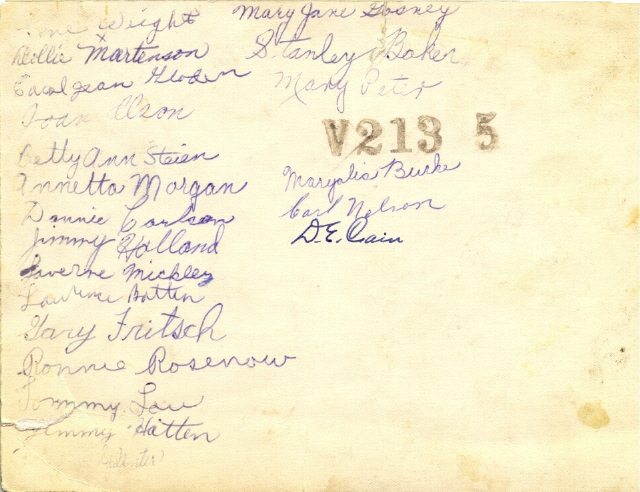 Wright
Mary Jane Gosney
Dillie Martenson
Stanley Baker
Carol Jean Gloden
Mary Peter
Joan Olson
V213 5
Betty Ann Steien
Annetta Morgan
Maryalis Burke
Donnie Carlson
Carl Nelson
Jimmy Holland
D.E. Cain
Laverne Mickley
Lawrence Batten
Gary Fritsch
Ronnie Rosenow
Tommy Law
Jimmy Hatten